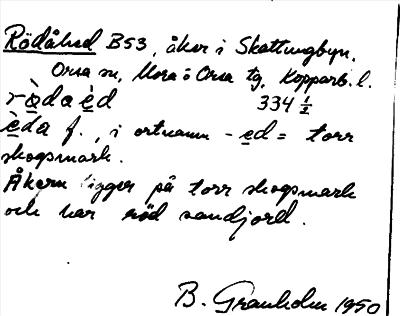 Rödåhed B53, åker i Skattungbyn,
Orsa sn, Mora o Orsa tg, Kopparb. l.
rö̀daèd 334 ½
èda f., i ortnamn -ed = torr
skogsmark.
Åkern ligger på torr skogsmark
och har röd sandjord.
B. Granholm 1950